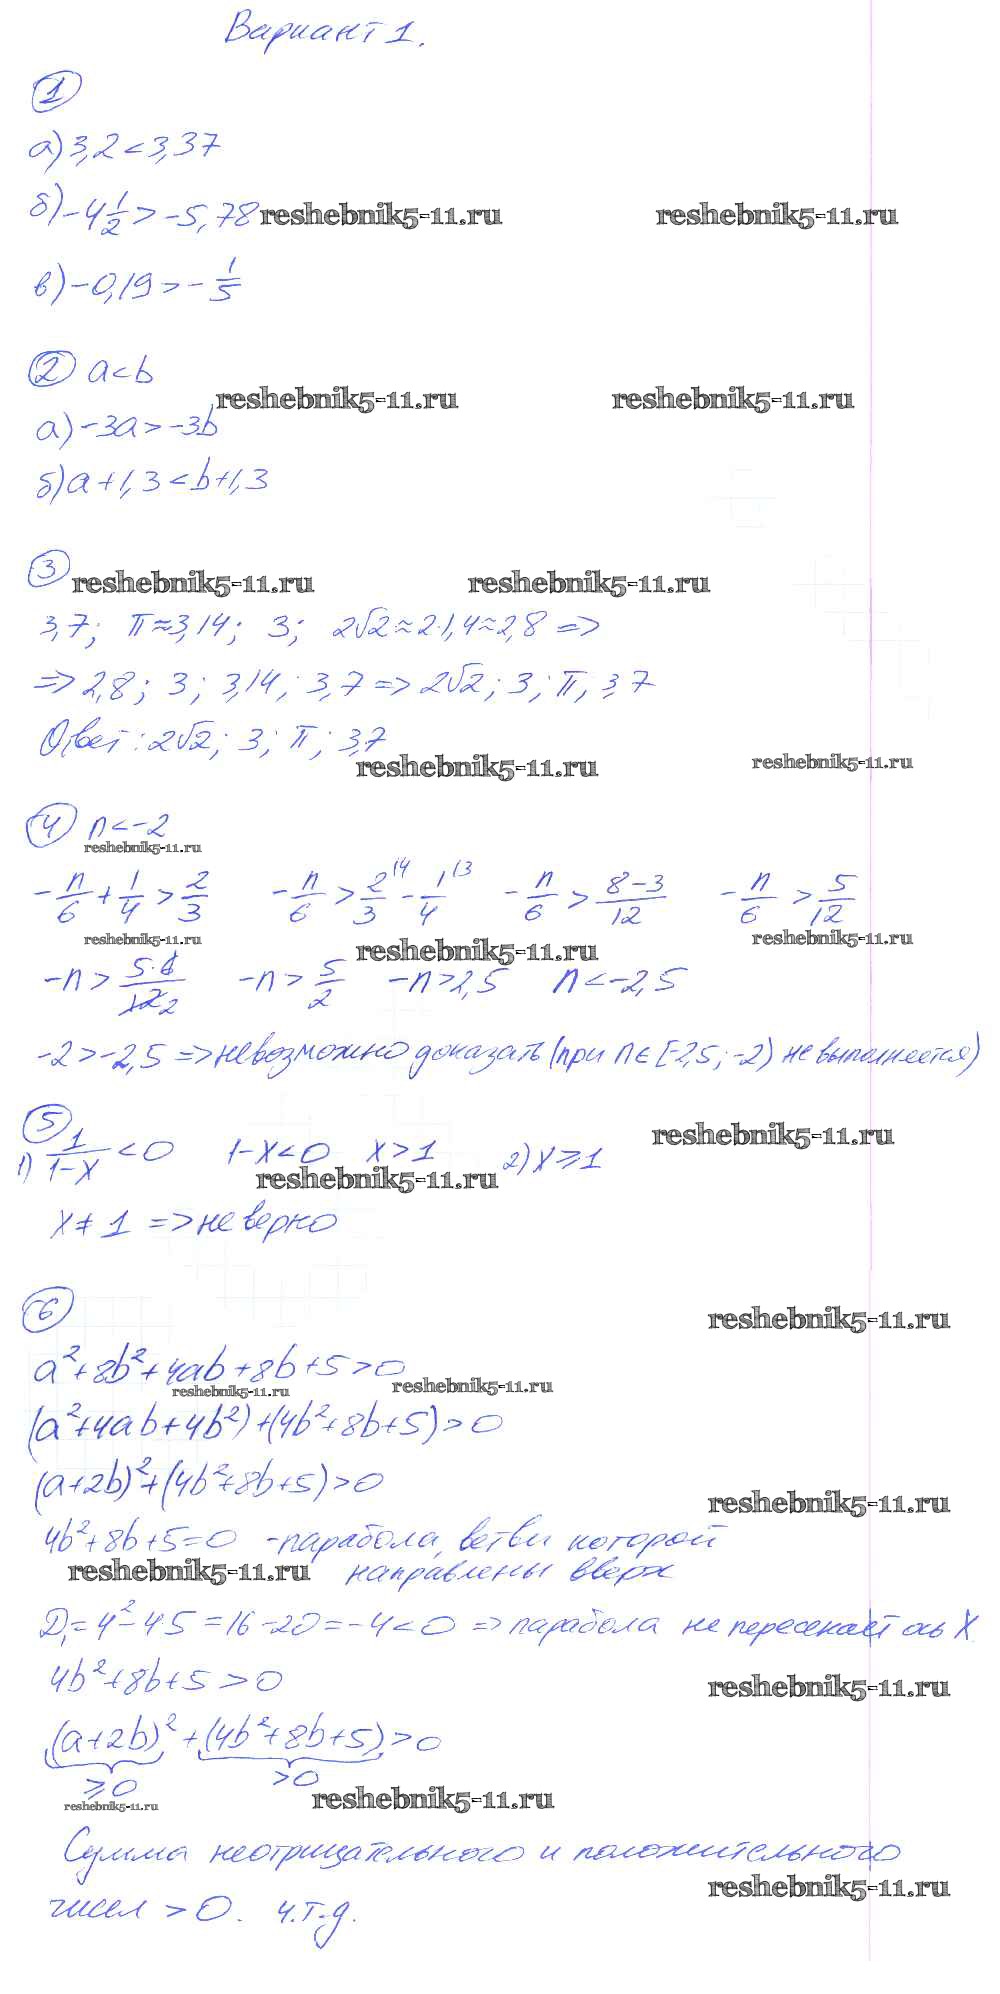 Вариант 1.
1
а) 3,2 < 3,37
б) -4 1/2 > -5,78
reshebnik5-11.ru reshebnik5-11.ru
в) -0,19 > -1/5
2 a < b
reshebnik5-11.ru reshebnik5-11.ru
а) -3a > -3b
б) a + 1,3 < b + 1,3
3
reshebnik5-11.ru reshebnik5-11.ru
3,7; π ≈ 3,14; 3; 2√2 ≈ 2·1,4 ≈ 2,8 =>
=> 2,8; 3; 3,14; 3,7 => 2√2; 3; π; 3,7
Ответ: 2√2; 3; π; 3,7
reshebnik5-11.ru reshebnik5-11.ru
4 n < -2
reshebnik5-11.ru
-n/6 + 1/4 > 2/3 -n/6 > 2/3 \4 - 1/4 \3 -n/6 > 8-3/12 -n/6 > 5/12
reshebnik5-11.ru reshebnik5-11.ru reshebnik5-11.ru
-n > 5·6/12 2 -n > 5/2 -n > 2,5 n < -2,5
-2 > -2,5 => невозможно доказать (при n ∈ [-2,5; -2) не выполняется)
5
reshebnik5-11.ru
1) 1/1-x < 0 1-x < 0 x > 1 2) x ⩾ 1
reshebnik5-11.ru
x ≠ 1 => неверно
6
reshebnik5-11.ru
a² + 8b² + 4ab + 8b + 5 > 0
reshebnik5-11.ru reshebnik5-11.ru
(a² + 4ab + 4b²) + (4b² + 8b + 5) > 0
(a + 2b)² + (4b² + 8b + 5) > 0
reshebnik5-11.ru
4b² + 8b + 5 = 0 - парабола, ветви которой
reshebnik5-11.ru направлены вверх
D₁ = 4² - 4·5 = 16 - 20 = -4 < 0 => парабола не пересекает ось X
4b² + 8b + 5 > 0
reshebnik5-11.ru
(a + 2b)² + (4b² + 8b + 5) > 0
⩾ 0 > 0
reshebnik5-11.ru reshebnik5-11.ru
Сумма неотрицательного и положительного
reshebnik5-11.ru
чисел > 0. ч.т.д.